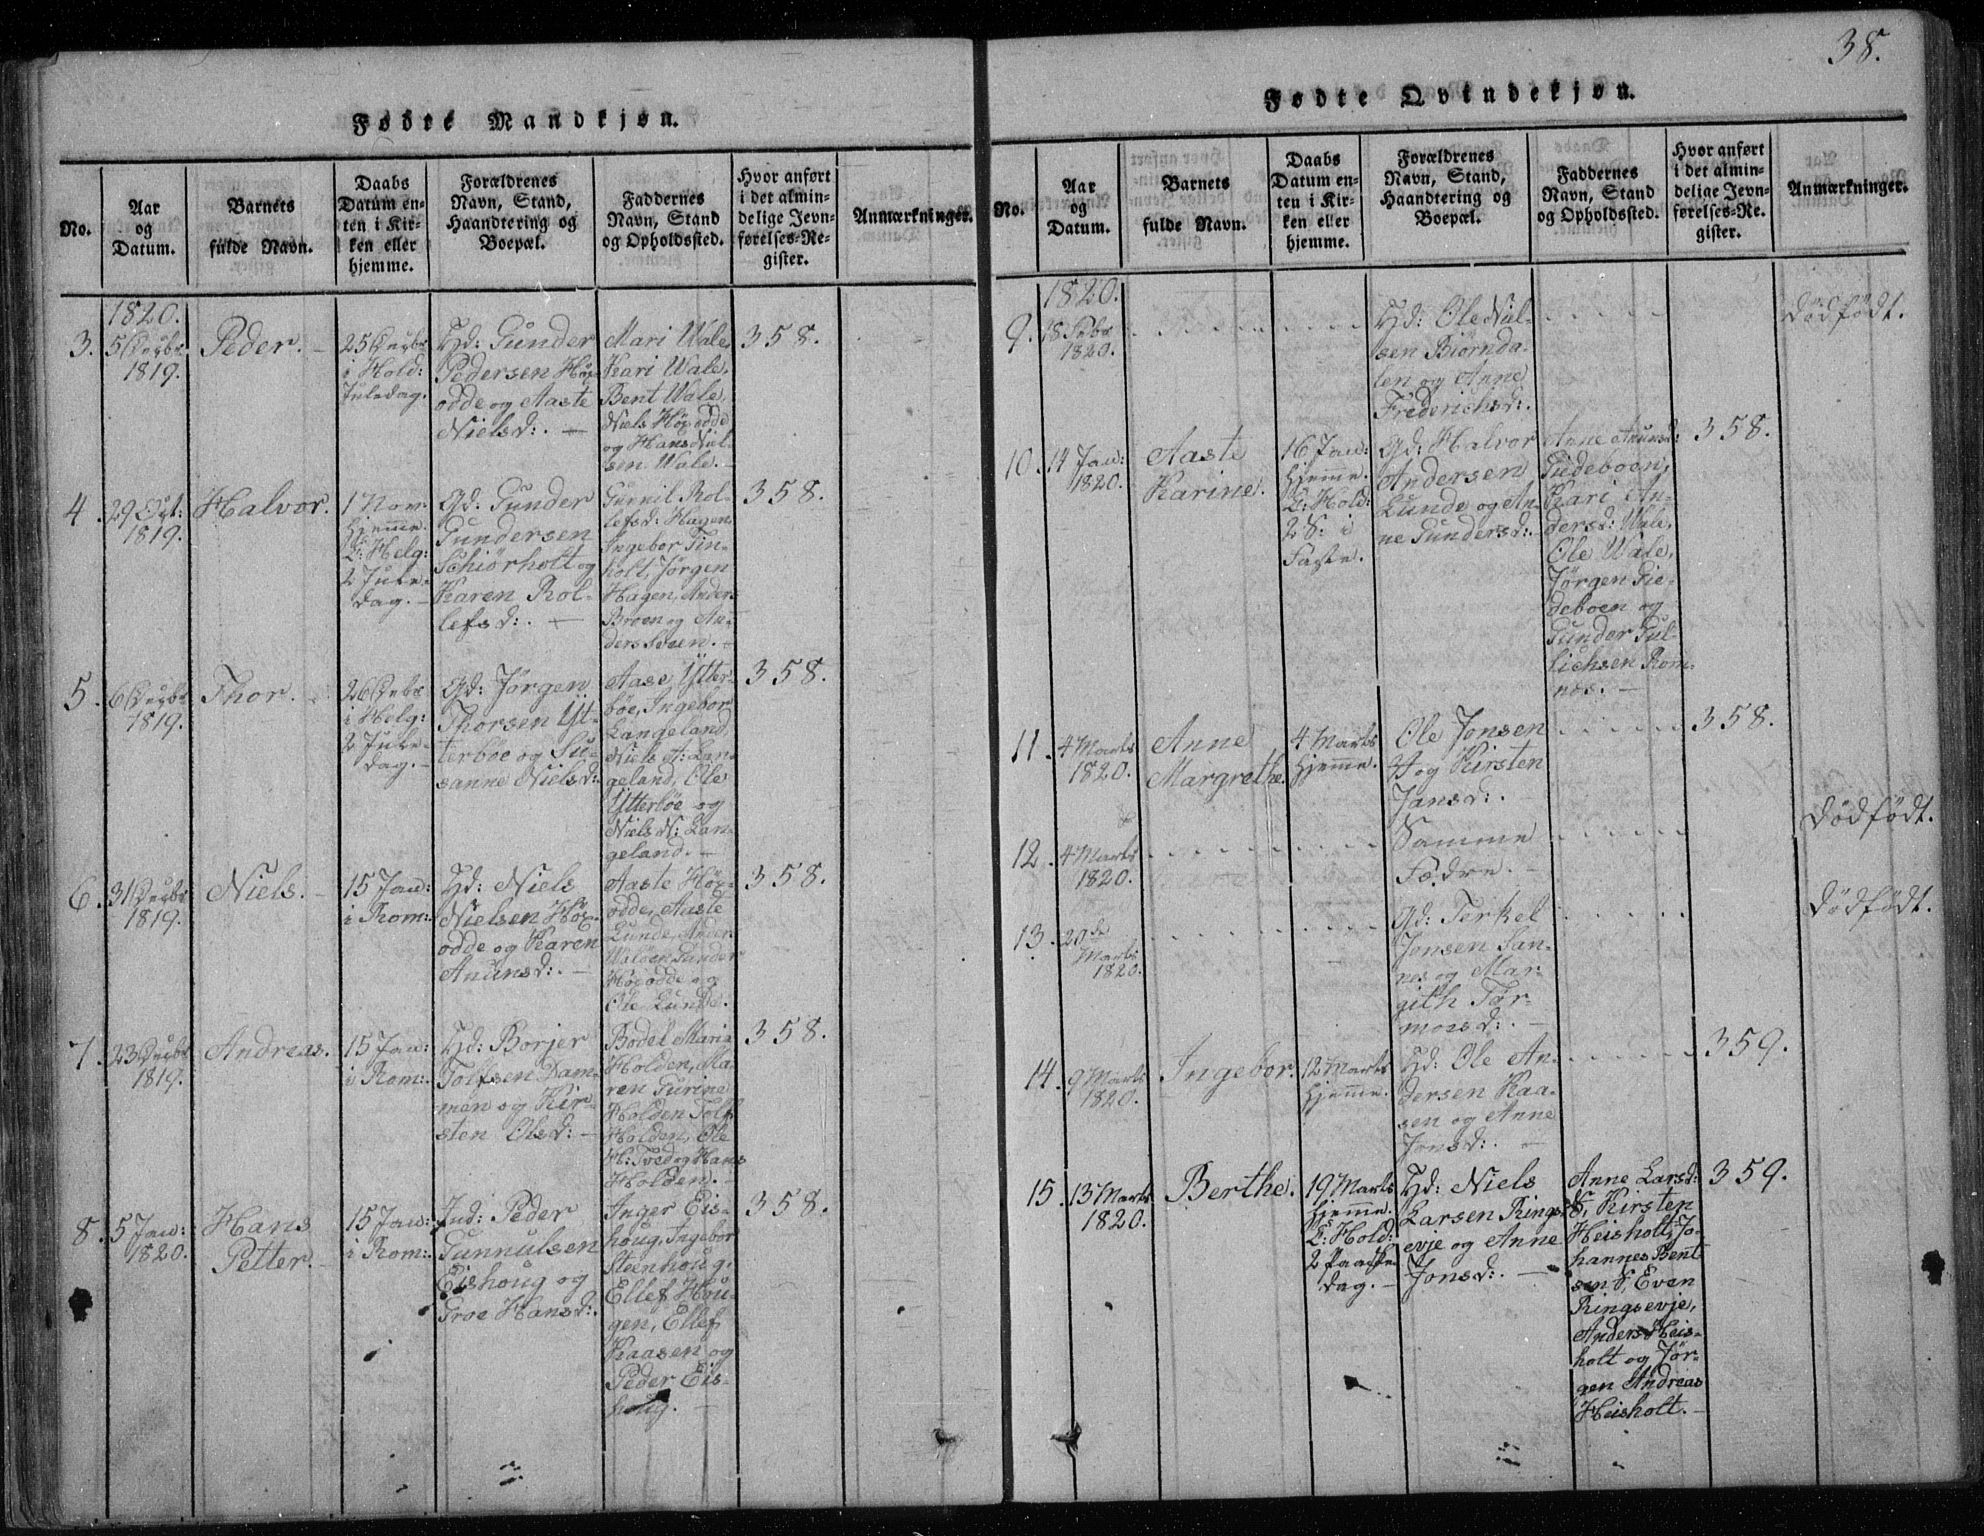 38.
Fødte Mandkjøn.
No.
Aar
og
Datum.
Barnets
fulde Navn.
Daabs
Datum en-
ten i Kir-
ken eller
hjemme.
Forældrenes
Navn, Stand,
Haandtering og
Boepæl.
Faddernes
Navn, Stand
og Opholdssted.
Hvor anført
i det almin-
delige Jevn-
førelses-Re-
gister.
Anmærkninger.
1820.
3.
5 Decbr
1819.
Peder.
25 Decbr
i Hold:
Juledag.
Hd: Gunder
Pedersen Høy-
odde og Aaste
Nielsd:.
Mari Wale,
Kari Wale,
Bent Wale,
Niels Høyodde
og Hans Niel-
sen Wale.
358.
4.
29 Oct:
1819.
Halvor.
1 Nov:
hjemme.
L: Helg:
2 Jule-
dag.
Gd: Gunder
Gundersen
Schiørholt og
Karen Rol-
lefsd:.
Gunil Rol-
lefsd: Hagen,
Ingebor Tin-
holt, Jørgen
Hagen, Anders
Broen og An-
ders Soen.
358.
5.
6 Decbr
1819.
Thor.
26 Decbr
i Helg:
2 Jule-
dag.
Gd: Jørgen
Thorsen Yt-
terboe og Su-
sanne Nielsd:
Aase Ytter-
böe, Ingebor
Langeland,
Niels A: Lan-
geland, Ole
Ytterböe og
Niels N: Lan-
geland.
358.
6.
31 Decbr
1819.
Niels.
15 Jan:
i Rom:
Hd: Niels
Nielsen Höy-
odde og Karen
Anunsd:.
Aaste Höy-
odde, Aaste
Lunde, Anders
Walöen, Gunder
Höyodde og
Ole Lunde.
358.
7.
23 Decbr
1819.
Andreas.
15 Jan:
i Rom:
Hd: Borjer
Tolfsen Dam-
men og Kir-
sten Olsd:
Bodel Maria
Holden, Ma-
ren Gurine
Holden, Tolf
Holden, Ole
H: Tved og Hans
Holden.
358.
8.
5 Jan:
1820.
Hans
Petter.
15 Jan:
i Rom:
Ind: Peder
Gunnulsen
Eishoug og
Groe Hansd:
Inger Eis-
houg, Ingebor
Steenhoug,
Ellef Hou-
gen, Ellef
Kaasen og
Peder Eis-
houg.
358.
Fødte Qvindekjøn.
No.
Aar
og
Datum.
Barnets
fulde Navn.
Daabs
Datum en-
ten i Kir-
ken eller
hjemme.
Forældrenes
Navn, Stand,
Haandtering og
Boepæl.
Faddernes
Navn, Stand
og Opholdssted.
Hvor anført
i det almin-
delige Jevn-
førelses-Re-
gister.
Anmærkninger.
1820.
9.
18 Febr
1820.
Hd: Ole Niel-
sen Biørnda-
len og Anne
Frederichsd:.
dödfödt.
10.
14 Jan:
1820.
Aaste
Karine.
16 Jan:
hjemme.
L: Hold:
2 S: i
Faste.
Gd: Halvor
Andersen
Lunde og An-
ne Gundersd:.
Anne Anunsd:
Giedeboen,
Kari An-
dersd: Wale,
Ole Wale,
Jørgen Gie-
deboen og
Gunder Gul-
lichsen Rom-
nes.
358.
11.
4 Marts
1820.
Anne
Margrethe.
4 Marts
hjemme.
Ole Jonsen
og Kirsten
Jansd:.
358.
12.
4 Marts
1820.
Samme
Fodre.
dödfödt.
13.
20de
Marts
1820.
Gd: Terkel
Jonsen San-
nes og Mar-
gith Tor-
mosd:.
dödfödt.
14.
9 Marts
1820.
Ingebor.
12 Marts
hjemme.
Hd: Ole An-
dersen Kaa-
sen og Anne
Jonsd:.
359.
15.
13 Marts
1820.
Berthe.
19 Marts
hjemme.
L: Hold:
2 Paaske-
dag.
Hd: Niels
Larsen Rings-
evje og Anne
Jonsd:.
Anne Larsd:
S, Kirsten
Heisholt, Jo-
hannes Bent-
sen S, Even
Ringsevje,
Anders Heis-
holt og Jør-
gen Andreas
Heisholt.
359.